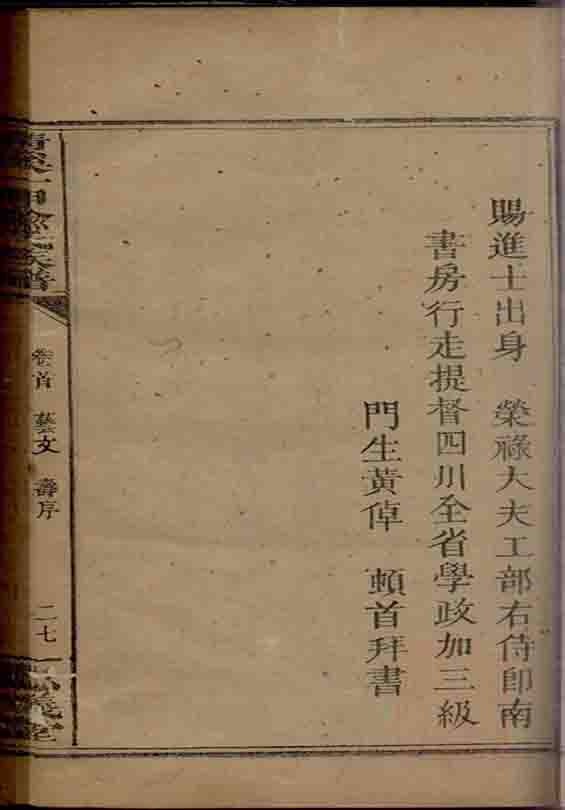 賜進士出身　榮祿大夫工部右侍郎南
書房行走提督四川全省學政加三級
門生黃倬　頓首拜書
族譜
卷首　藝文　壽序
二七